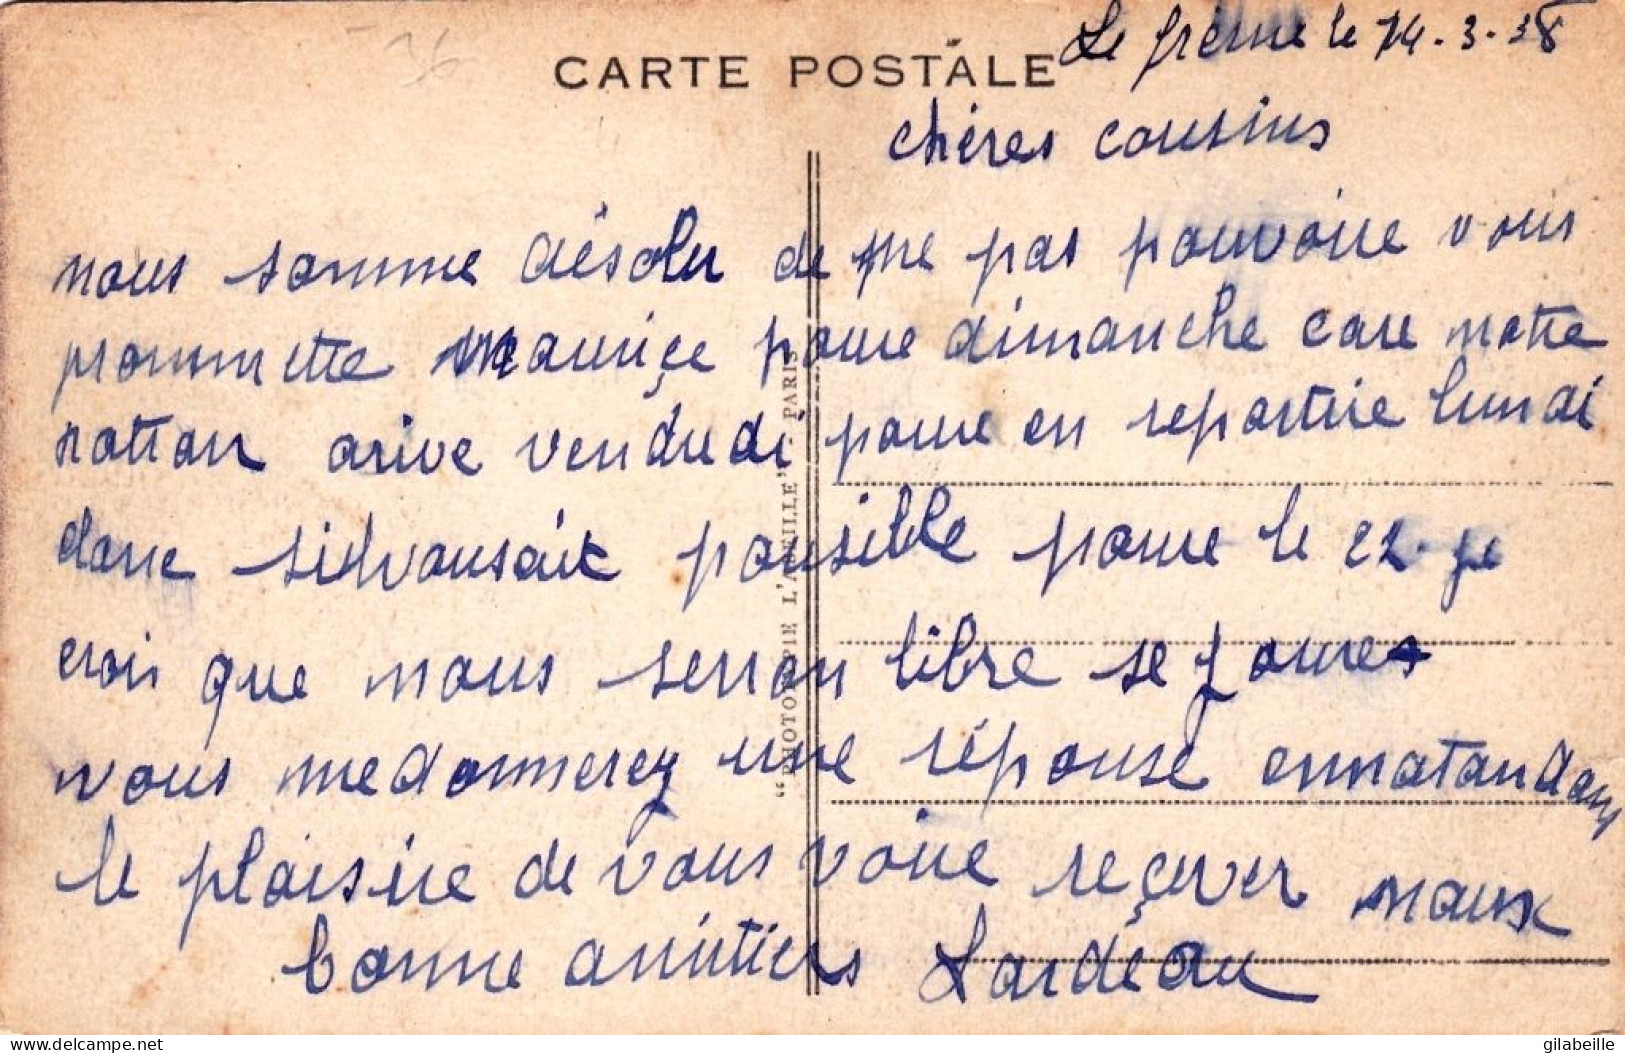 CARTE POSTALE
Le frêsne le 14-3-38
chères cousins
nous somme désoler de ne pas pouvoire vous
prommette maurice poure dimanche care notre
notton arive vendredi poure en repartire lundi
donc silvousait possible poure le 22. je
crois que nous serron libre se joures
vous me donnerez une réponse ennatandans
le plaisire de vous voire reçever naux
bonne amitiers Lardéau
"PHOTOTYPIE L'ABEILLE" - PARIS
delcampe.net
gilabeille